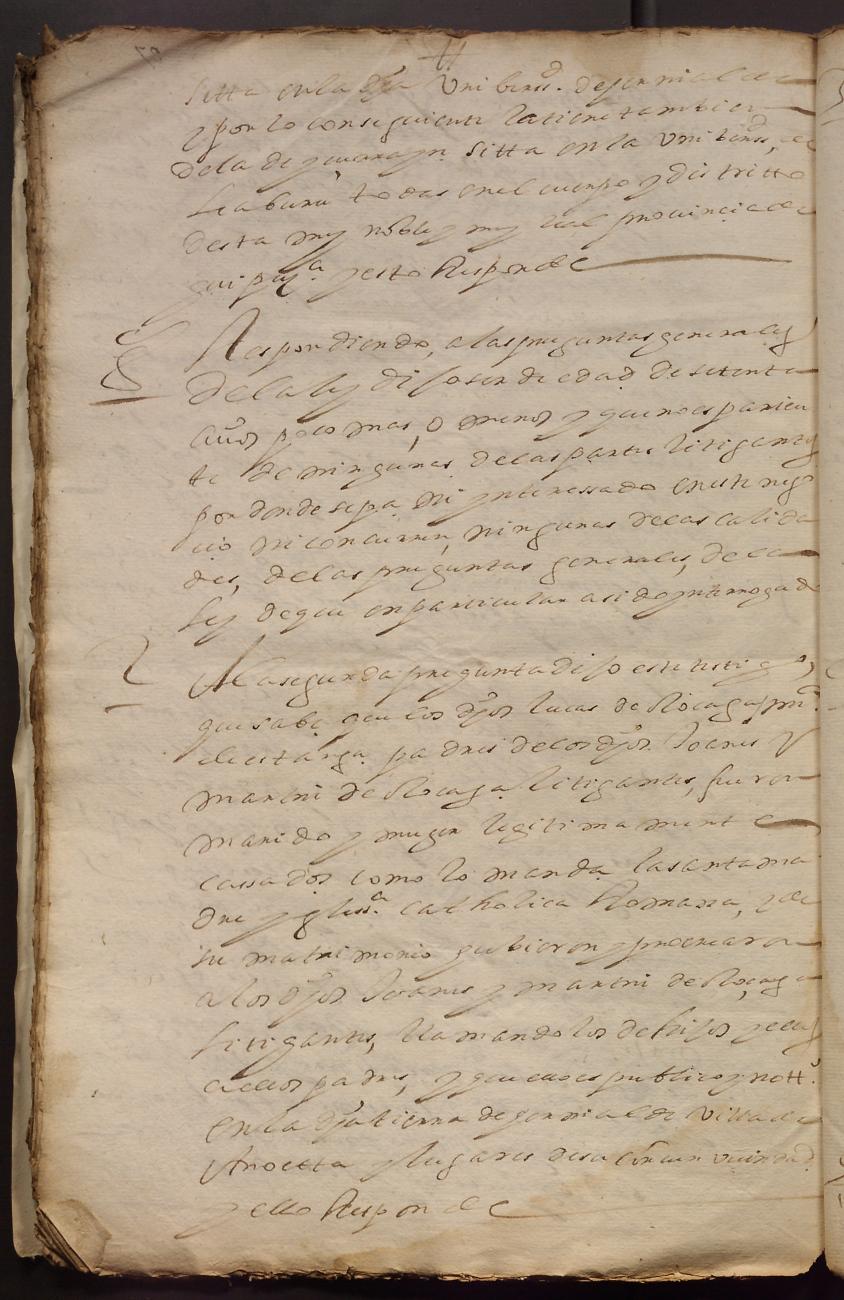 sitta en la dha Unibersd. de
y por lo consiguiente la tiene tambien
de la de sitta en la Unibersd. de
Leaburu todas en el cuerpo y distritto
desta muy noble y muy leal provincia de
guipuzca. y esto Responde
Respondiendo, a las preguntas generales
De la ley dijo ser de edad de setenta
años poco mas, o menos y que no es parien
te de ningunas de las partes litigantes
por donde sepa ni ynteressado en este nego
cio ni concurren, ningunas de las calida
des, de las preguntas generales, de la
ley de que en particular a sido ynterrogado
2 A la segunda pregunta dijo este testigo,
que sabe que los dhos lucas de
padres de los dhos. Joanes y
martin de litigantes, fueron
marido y muger legitimamente
cassados como lo manda la santa ma
dre yglessa. catholica Romana, y de
su matrimonio hubieron y procrearon
a los dhos Joanes y martin de
litigantes, llamandolos de hijos y ellos
a ellos padres, y que ello es publico y nott.
En la dha tierra de villa de
Anoetta y lugares de su circunvecindad
y esto Responde